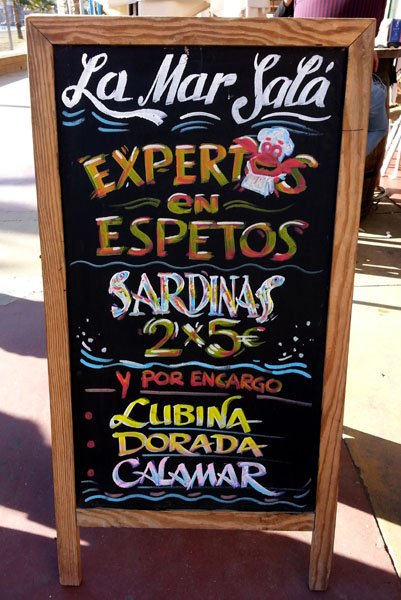 La Mar Salá
EXPERTOS
en
ESPETOS
SARDINAS
2x5€
Y POR ENCARGO
LUBINA
DORADA
CALAMAR